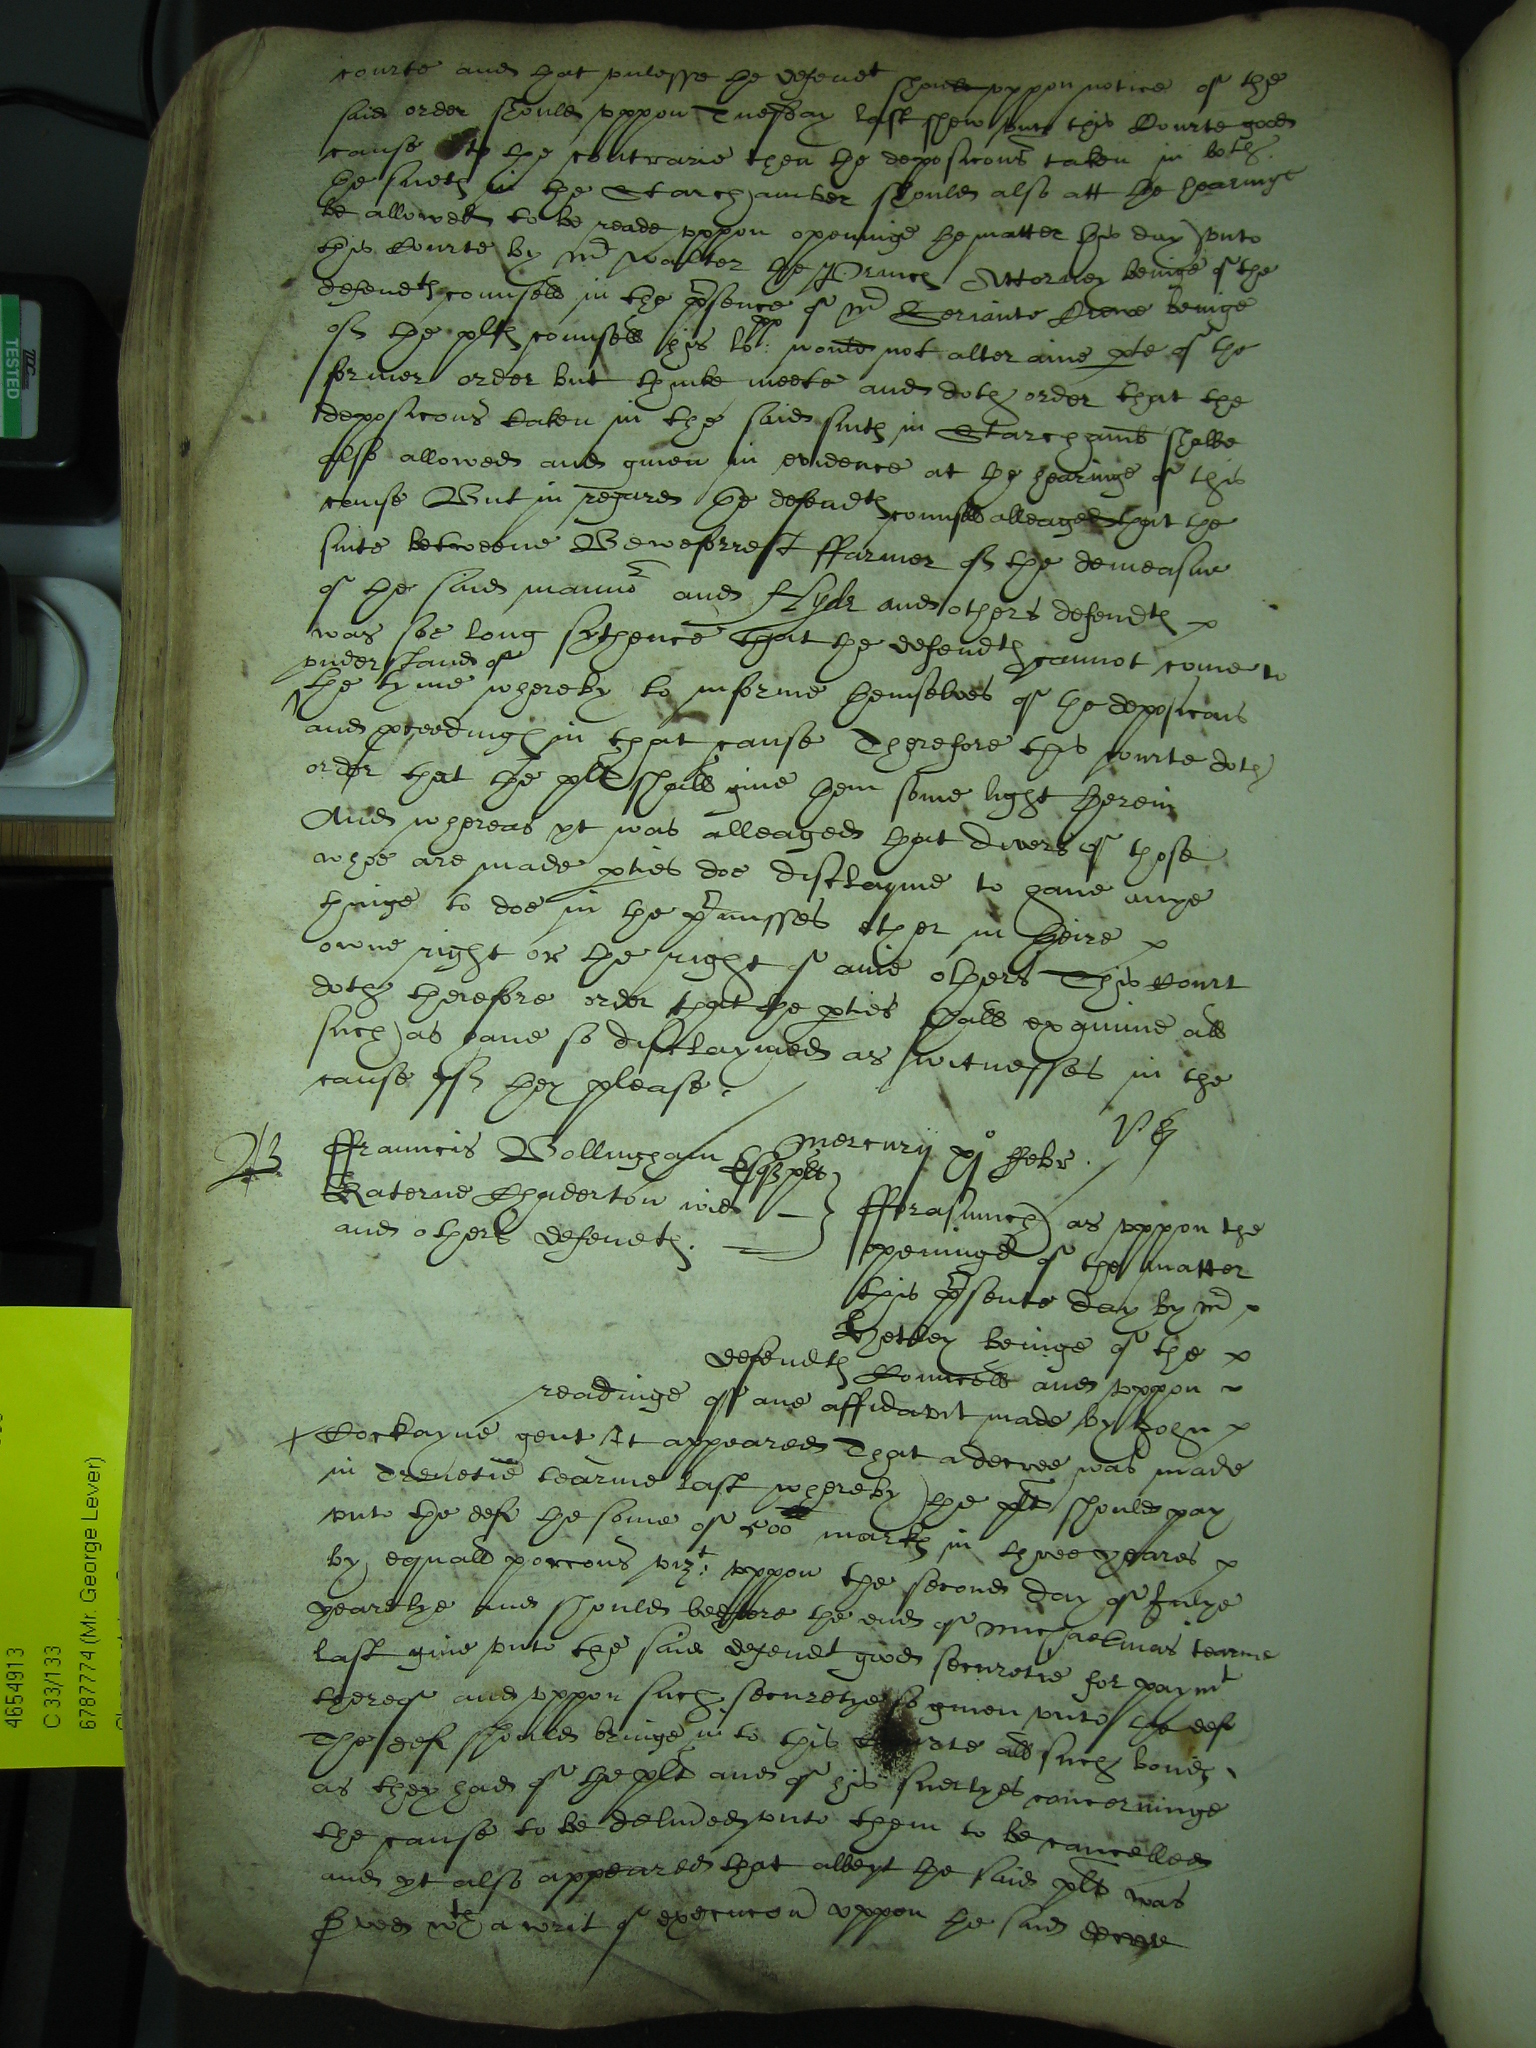 courte and that unlesse the defendt should uppon notice of the
said order should uppon Tuesday last shew unto this Courte good
cause to the contrarie then the deposicons taken in both
the suets in the Starchamber should also att the hearinge
be allowed to be reade uppon openinge the matter this day unto
this Courte by Mr Walter the Princes Attorney beinge of the
defendtes counsell in the psence of Mr Seriante Crewe beinge
of the pltes counsell his lopp: would not alter anie pte of the
former order but thinke meete and doth order that the
deposicons taken in the said suites in Starchamb shalbe
also allowed and given in evidence at the hearinge of this
cause But in regard the defendtes counsell alleaged that the
suite betweene Beweforrest ffarmer of the demeasne
of the said mannor and Hyde and others defendtes
was soe long sythence that the defendtes cannot come to
understand of
the tyme whereby to informe themselves of the deposicons
and pceedinges in that cause Therefore this courte doth
order that the plt shall give them some light therein
And whereas yt was alleaged that divers of those
whoe are made pties doe disclayme to have anye
thinge to doe in the pmisses ether in theire
owne right or the right of anie others This Court
doth therefore order that the pties shall examine all
such as have so disclaymed as witnesses in the
cause yf they please.
Mercurij xjo Febr.
ffrauncis Bollingham Esqr plt
Katerne Chaderton wid
and others defendtes
fforasmuch as uppon the
openinge of the matter
this psente day by Mr
Hetley beinge of the
defendtes Councell and uppon
readinge of ane affidavit made by John
+ Cockayne gent It appeared That a decree was made
in Trenetie tearme last whereby the plt should pay
unto the def the some of 500 markes in three yeares
by equall porcons vizt: uppon the second day of Julye
yearelye and should beefore the end of Michaelmas tearme
last give unto the said defendt good securetie for paymt
thereof and uppon such securetye so given unto the def
The def should bringe in to this Courte all such bondes
as they had of the plt and of his suertyes concerninge
the cause to be delivered unto them to be cancelled
and yt also appeared that albeyt the said plt was
served wth a writ of execucon uppon the said decree
TESTED
4654913
C 33/133
6787774 (Mr. George Lever)